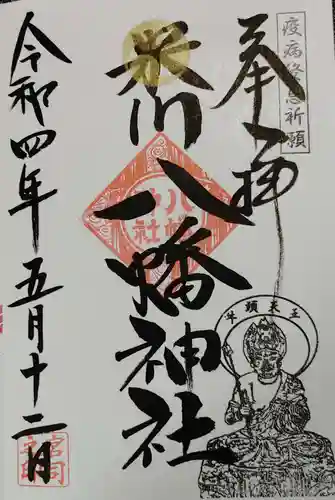 疫病終息祈願
奉拝
米川八幡神社
八幡
神社
牛頭天王
令和四年五月十二日
宮司